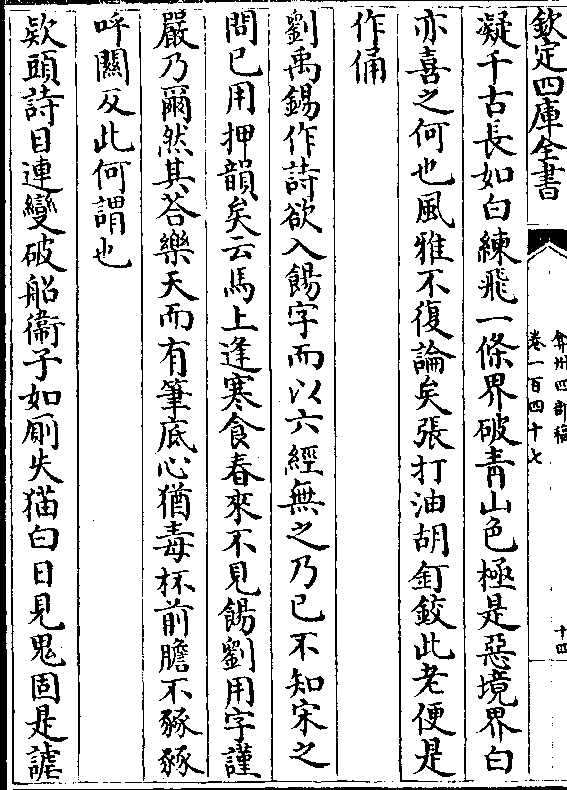 欽定四庫全書
弇州四部稿
卷一百四十七
十四
凝千古長如白練飛一條界破青山色極是惡境界白
亦喜之何也風雅不復論矣張打油胡釘鉸此老便是
作俑
劉禹錫作詩欲入餳字而以六經無之乃已不知宋之
問已用押韻矣云馬上逢寒食春來不見餳劉用字謹
嚴乃爾然其荅樂天而有筆底心猶毒杯前膽不豩豩
呼關反此何謂也
欵頭詩目連變破船衞子如厠失猫白日見鬼固是謔